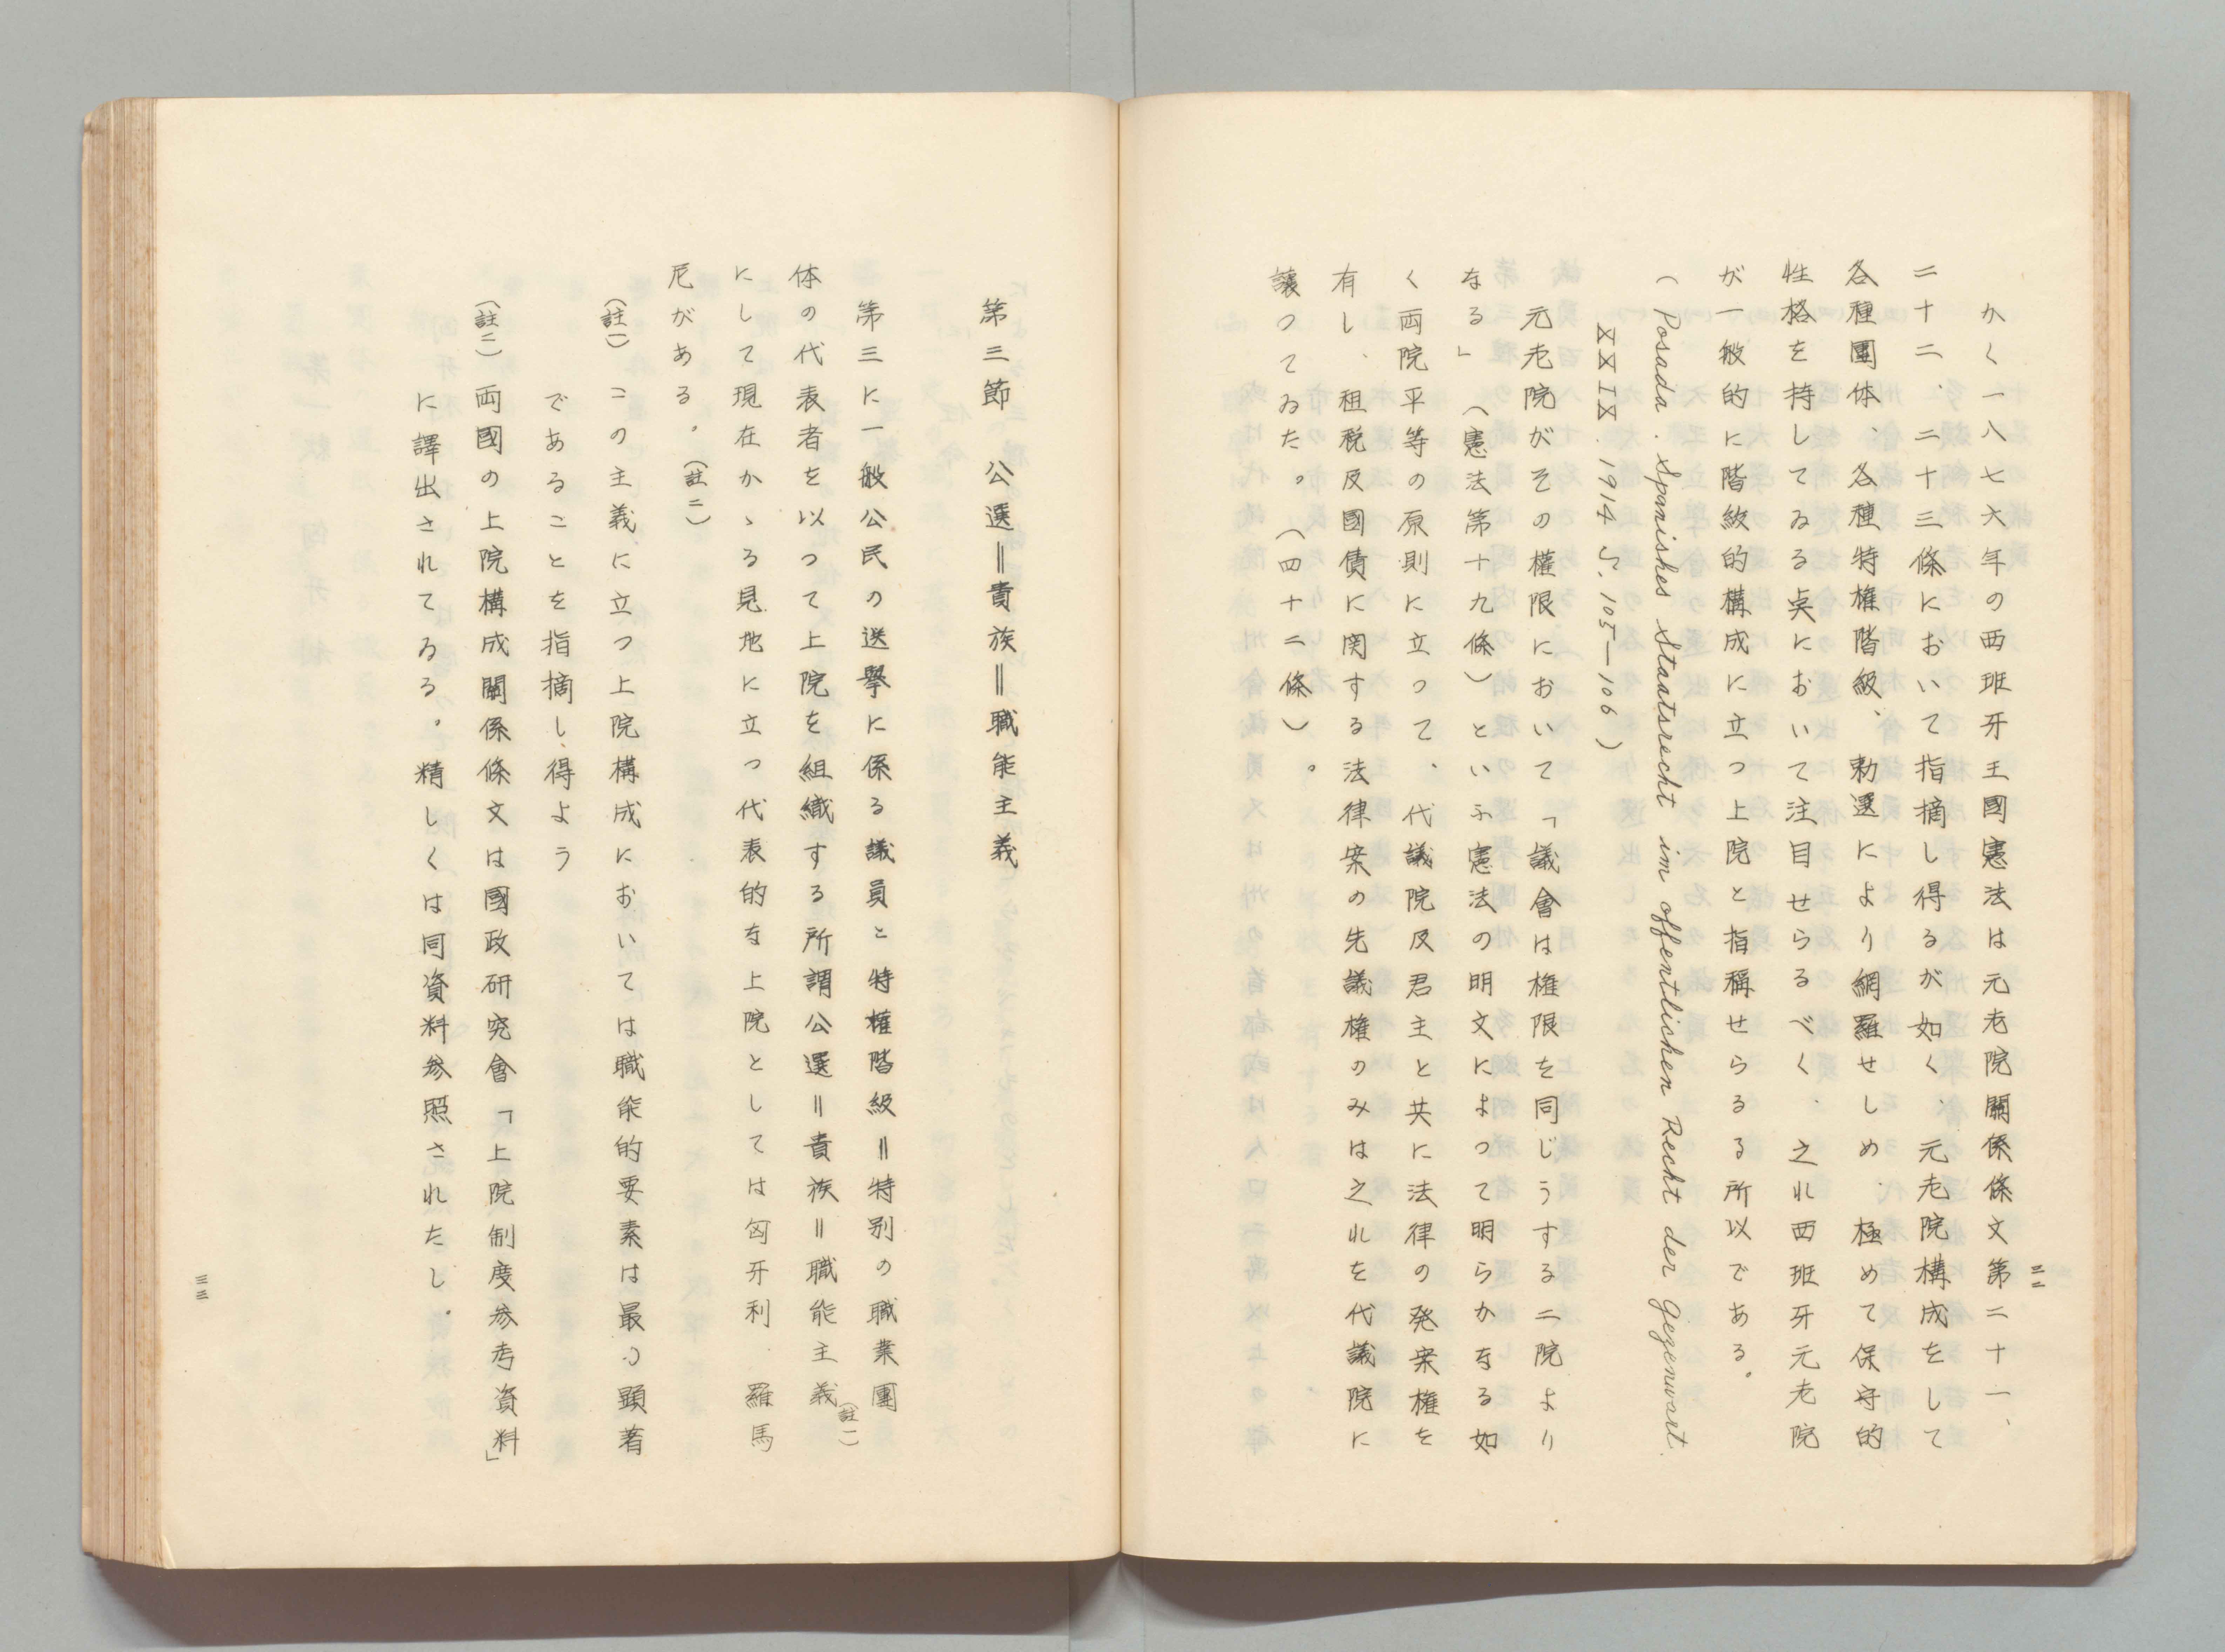 かく一八七六年の西班牙王國憲法は元老院關係條文第二十一、
二十二、二十三條において指摘し得るが如く、元老院構成をして
各種團体、各種特権階級、勅選により網羅せしめ、極めて保守的
性格を持してゐる点において注目せらるべく、之れ西班牙元老院
が一般的に階級的構成に立つ上院と指稱せらるる所以である。
(Posada. Spanishes Staatsrecht im offentlichen Recht der Gegenwart.
XXIX. 1914 S. 105—106)
元老院がその權限において「議會は権限を同じうする二院より
なる」(憲法第十九條)といふ憲法の明文によつて明らかなる如
く両院平等の原則に立つて、代議院及君主と共に法律の発案権を
有し、租税及國債に関する法律案の先議権のみは之れを代議院に
讓つてゐた。(四十二條)。
三二
第三節 公選=貴族=職能主義
第三に一般公民の選擧に係る議員と特権階級=特別の職業團
体の代表者を以つて上院を組織する所謂公選=貴族=職能主義(註一)
にして現在かゝる見地に立つ代表的な上院としては匈牙利 羅馬
尼がある。(註二)
(註一) この主義に立つ上院構成においては職能的要素は最も顕著
であることを指摘し得よう
(註二) 両國の上院構成關係條文は國政研究會「上院制度参考資料」
に譯出されてゐる。精しくは同資料参照されたし。
三三